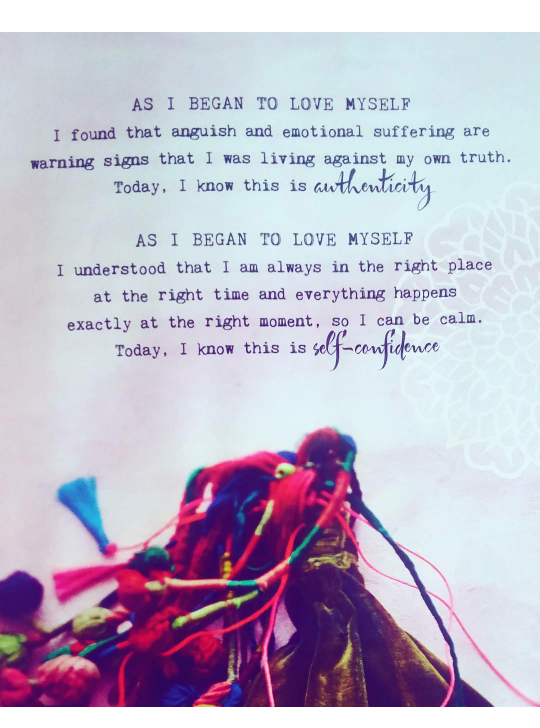 AS I BEGAN TO LOVE MYSELF
I found that anguish and emotional suffering are
warning signs that I was living against my own truth.
Today, I know this is authenticity
AS I BEGAN TO LOVE MYSELF
I understood that I am always in the right place
at the right time and everything happens
exactly at the right moment, so I can be calm.
Today, I know this is self-confidence